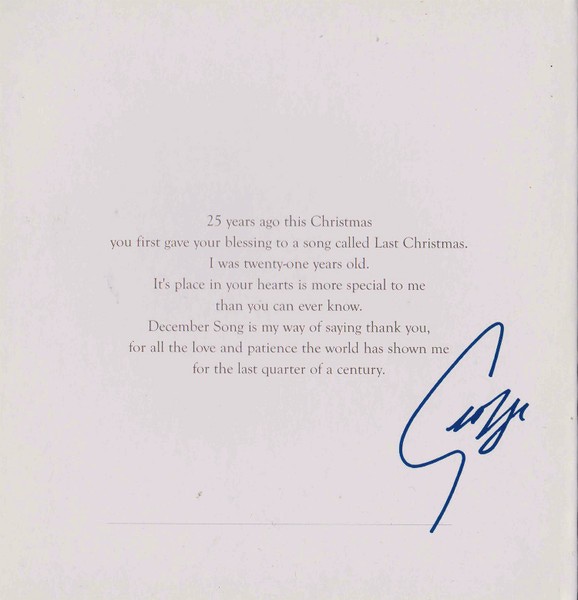 25 years ago this Christmas
you first gave your blessing to a song called Last Christmas.
I was twenty-one years old.
It's place in your hearts is more special to me
than you can ever know.
December Song is my way of saying thank you,
for all the love and patience the world has shown me
for the last quarter of a century.
George